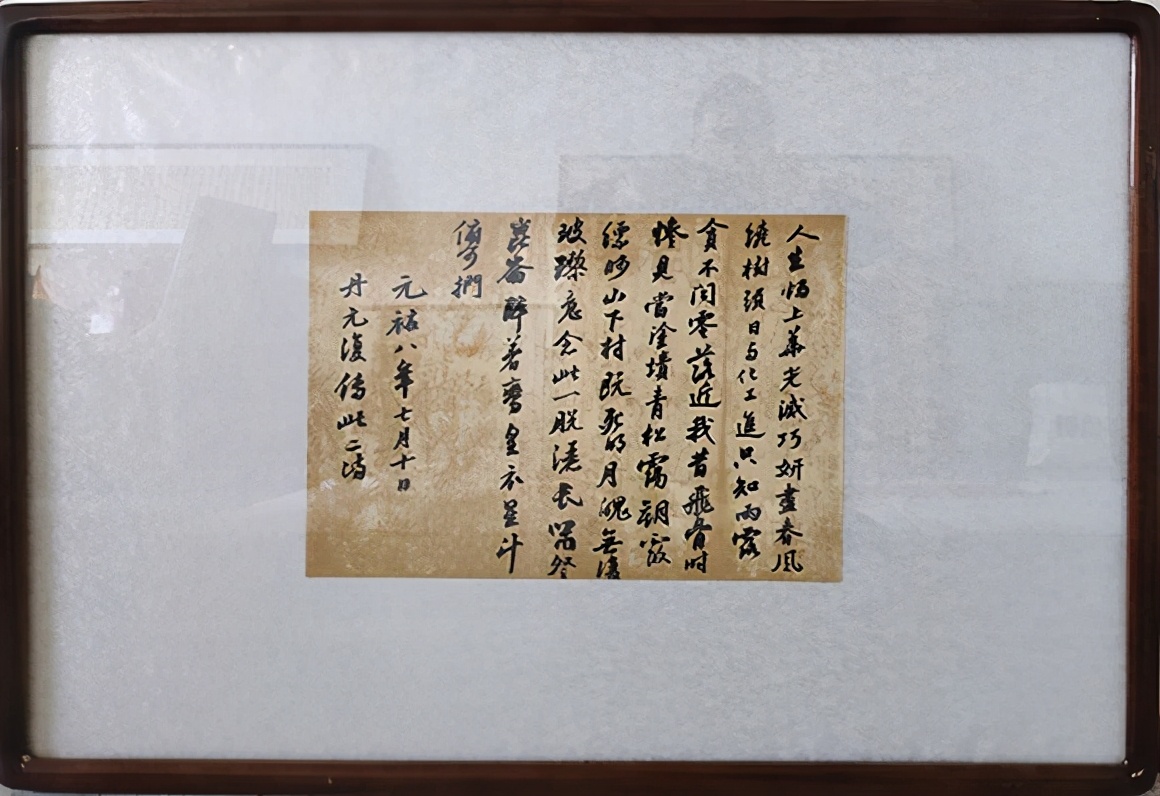 人生燭上華光滅巧妍盡春風
繞樹頭日与化工進只知雨露
貪不聞零落近我昔飛骨時
慘見當塗墳青松靄朝霞
縹眇山下村既死明月魄無復
玻瓈魂念此一脫灑長嘯登
崑崙醉著鸞皇衣星斗
俯可捫
元祐八年七月十日
丹元復傳此二詩